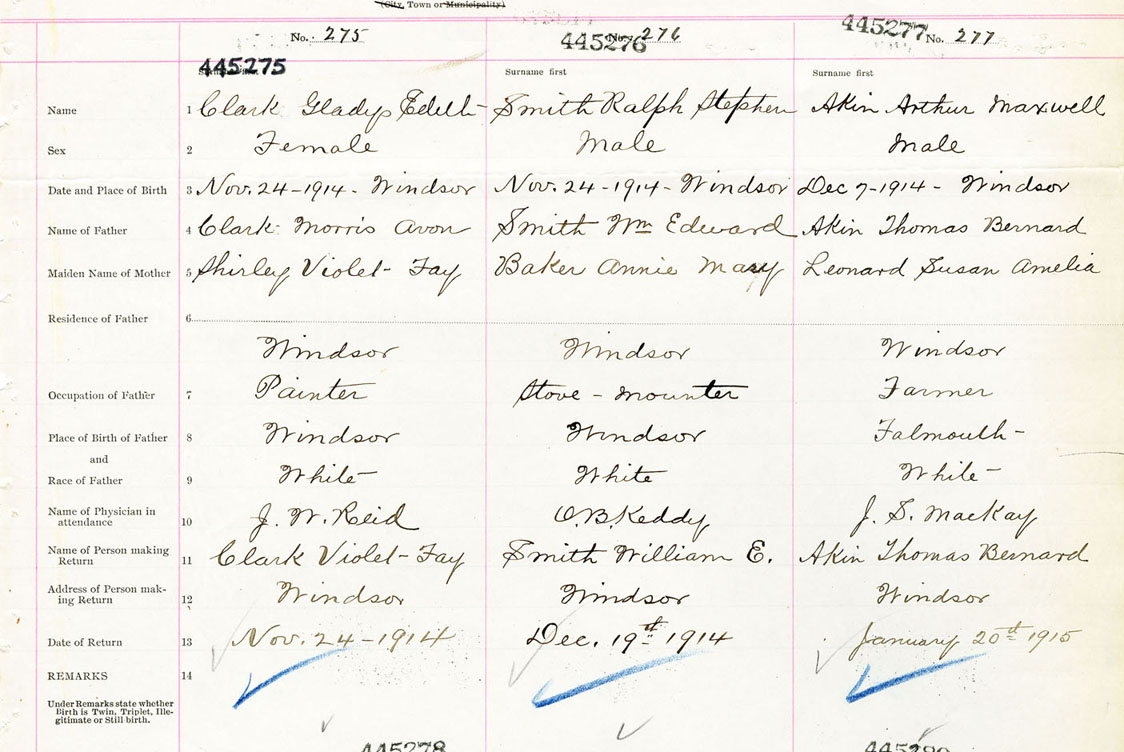 (City, Town or Municipality)
No. 275 No. 276 No. 277
445275 445276 445277
Surname first Surname first
Name 1 Clark Gladys Edith Smith Ralph Stephen Akin Arthur Maxwell
Sex 2 Female Male Male
Date and Place of Birth 3 Nov. 24-1914- Windsor Nov. 24-1914- Windsor Dec 7-1914- Windsor
Name of Father 4 Clark Morris Avon Smith Wm Edward Akin Thomas Bernard
Maiden Name of Mother 5 Shirley Violet Fay Baker Annie Mary Leonard Susan Amelia
Residence of Father 6
Windsor Windsor Windsor
Occupation of Father 7 Painter Stove-mounter Farmer
Place of Birth of Father 8 Windsor Windsor Falmouth
and
Race of Father 9 White White White
Name of Physician in
attendance 10 J. W. Reid O.B. Keddy J. S. MacKay
Name of Person making
Return 11 Clark Violet Fay Smith William E. Akin Thomas Bernard
Address of Person mak-
ing Return 12 Windsor Windsor Windsor
Date of Return 13 Nov. 24-1914 Dec. 19th 1914 January 20th 1915
REMARKS 14
Under Remarks state whether
Birth is Twin, Triplet, Ille-
gitimate or Still birth.
445278